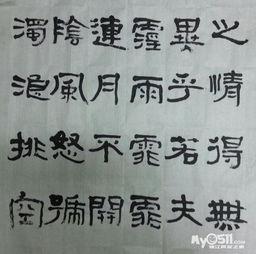 之情得無
異乎若夫
霪雨霏霏
連月不開
陰風怒號
濁浪排空
My0511.com